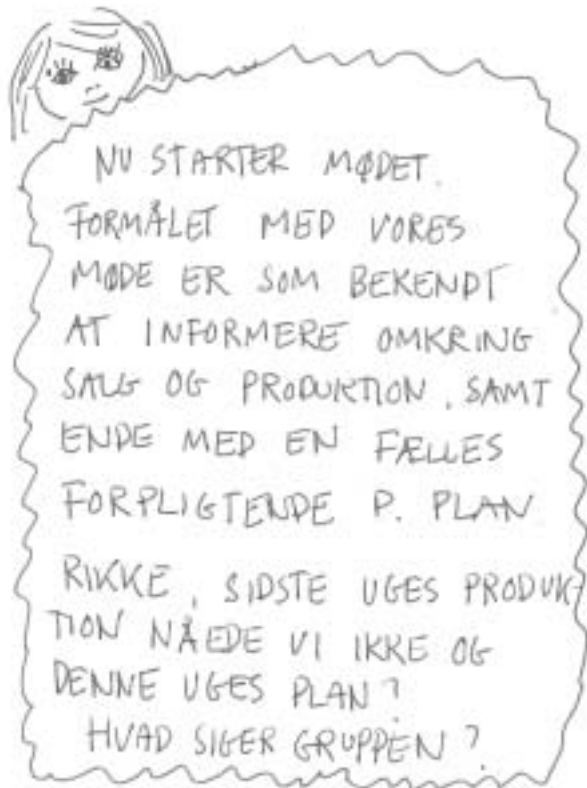 NU STARTER MØDET.
FORMÅLET MED VORES
MØDE ER SOM BEKENDT
AT INFORMERE OMKRING
SALG OG PRODUKTION, SAMT
ENDE MED EN FÆLLES
FORPLIGTENDE P. PLAN
RIKKE, SIDSTE UGES PRODUK
TION NÅEDE VI IKKE OG
DENNE UGES PLAN?
HVAD SIGER GRUPPEN?